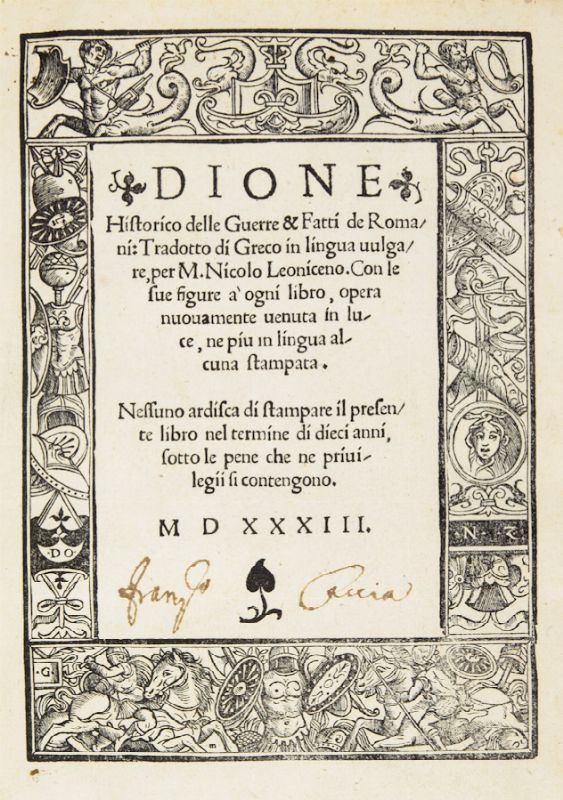 DIONE
Historico delle Guerre & Fatti de Roma/
ni: Tradotto di Greco in lingua uulga/
re, per M. Nicolo Leoniceno. Con le
sue figure a' ogni libro, opera
nuouamente uenuta in lu-
ce, ne piu in lingua al-
cuna stampata.
Nessuno ardisca di stampare il presen/
te libro nel termine di dieci anni,
sotto le pene che ne priui-
legii si contengono.
M D XXXIII.
·DO·
·G·